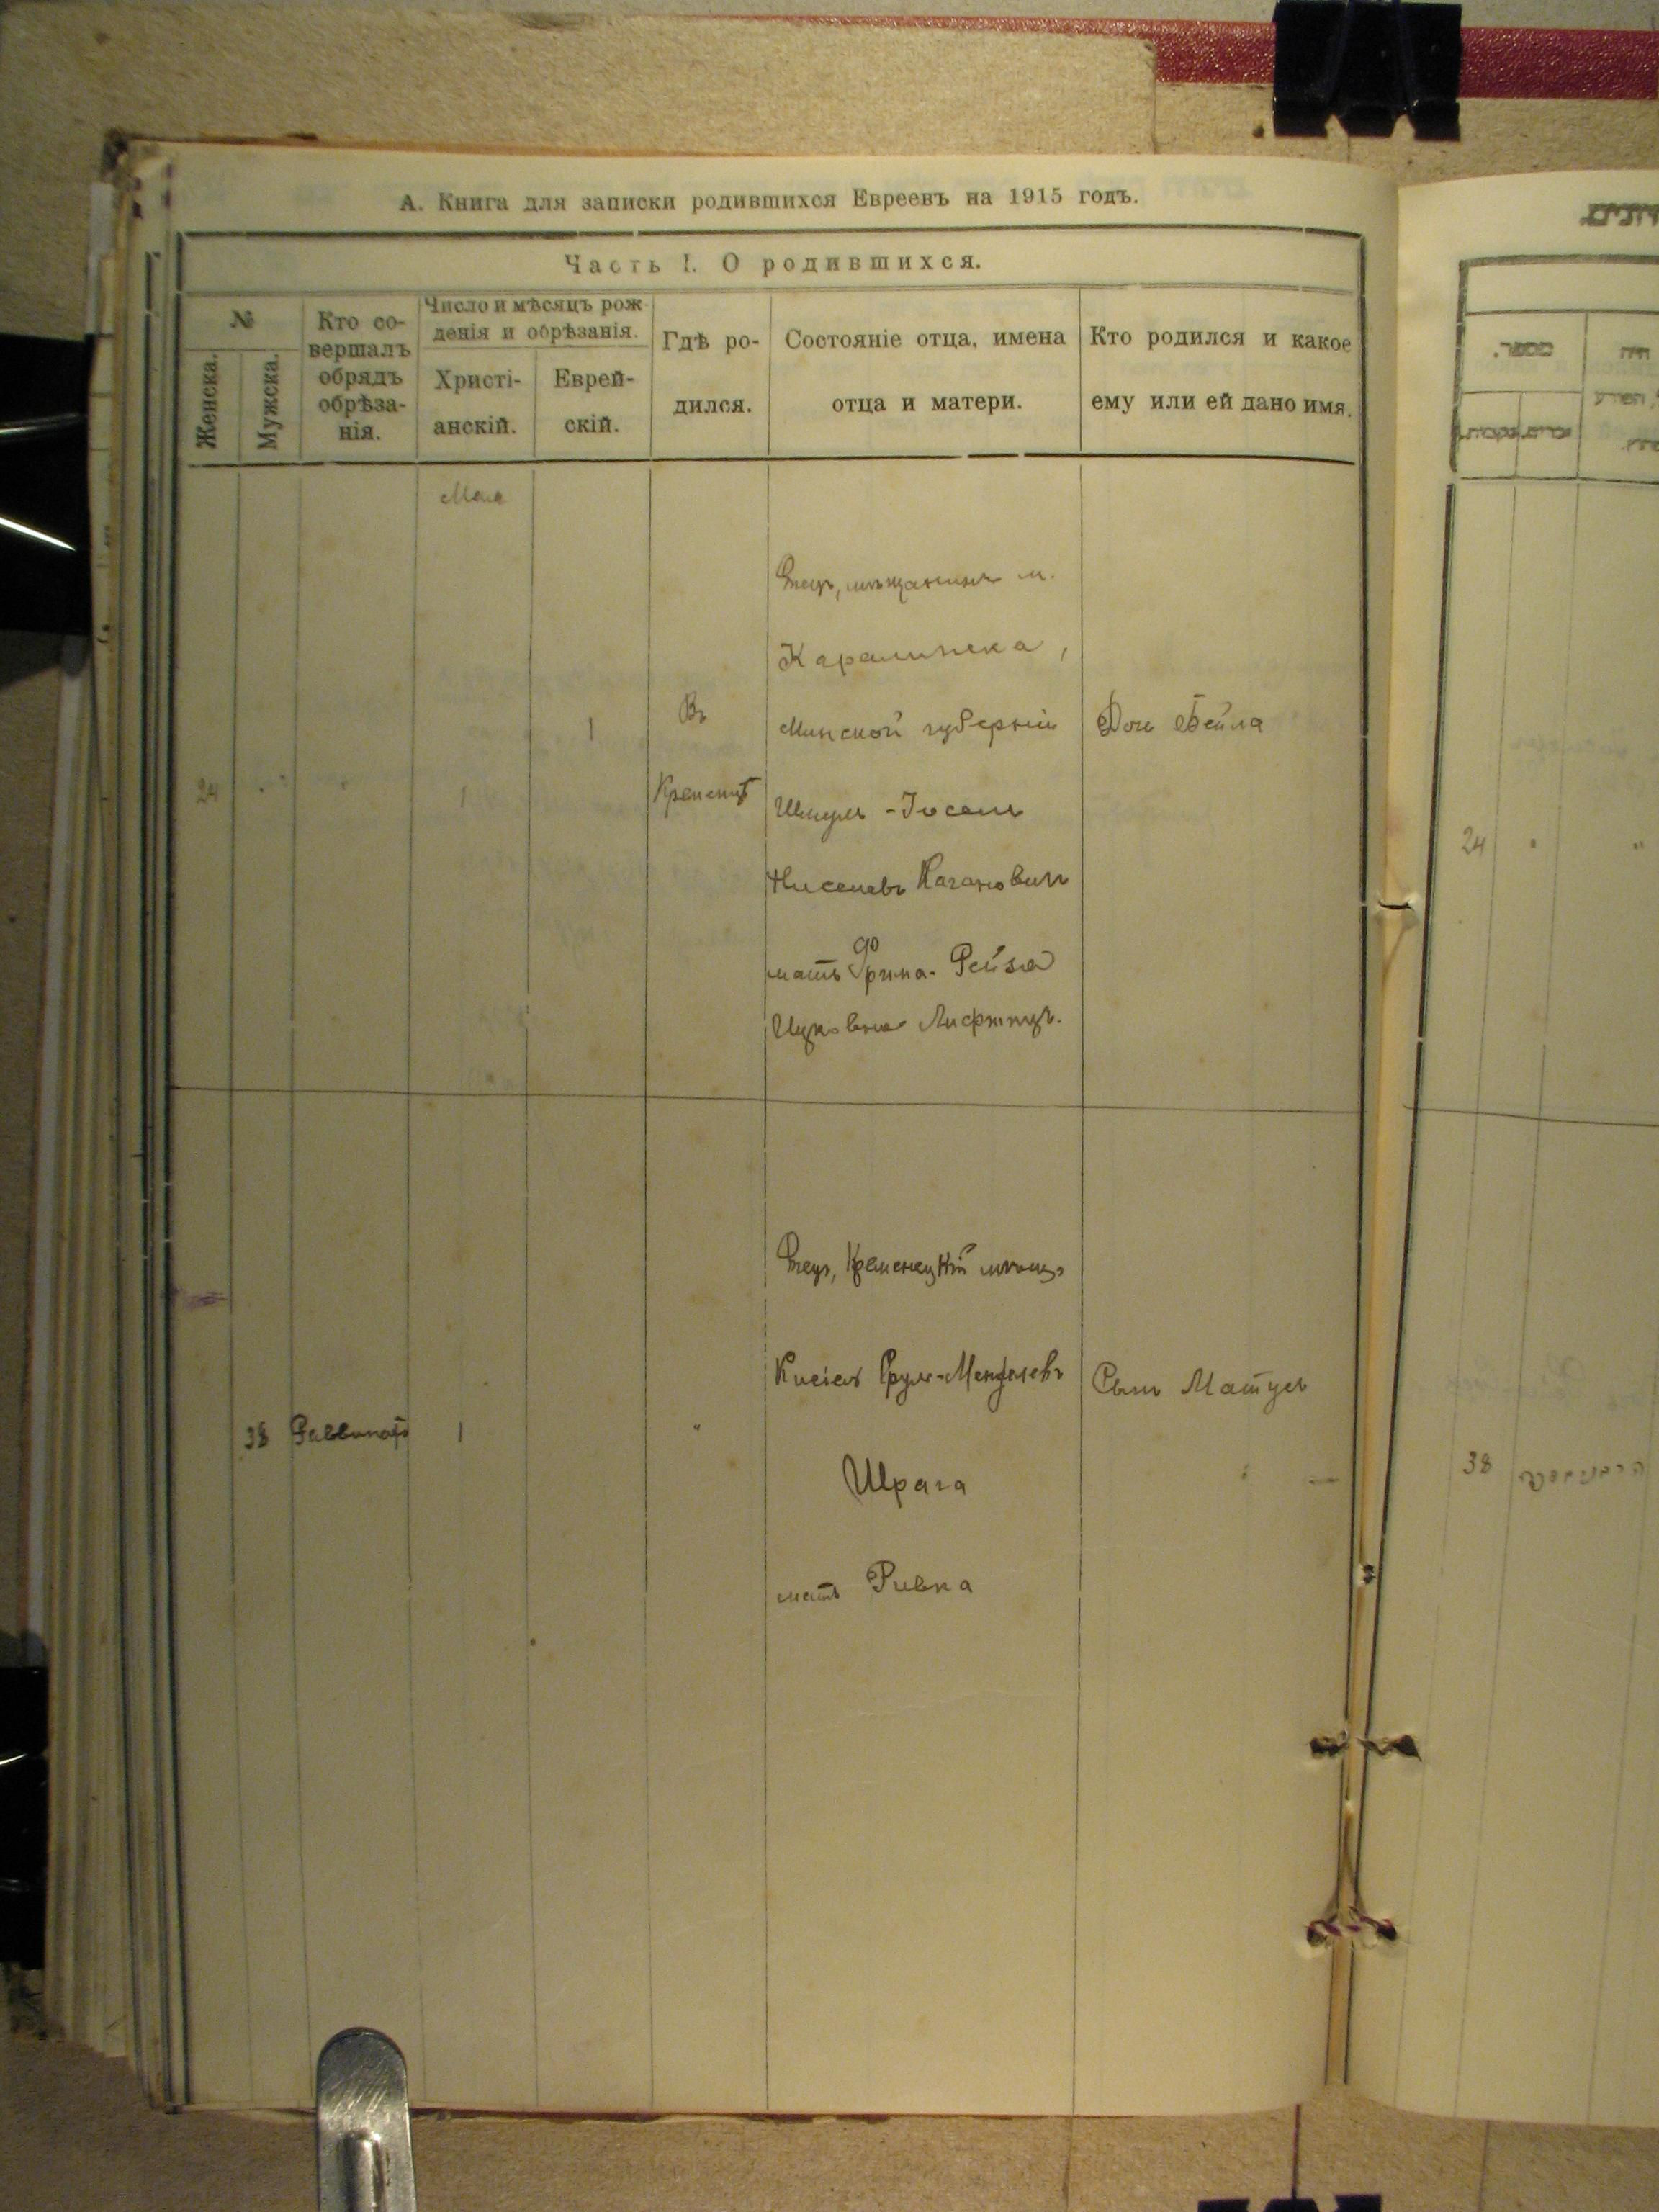 А. Книга для записки родившихся Евреевъ на 1915 годъ.
Часть I. О родившихся.
№
Женска.
Мужска.
Кто со-
вершалъ
обрядъ
обрѣза-
нія.
Число и мѣсяцъ рож
денія и обрѣзанія.
Христі-
анскій.
Еврей-
скій.
Гдѣ ро-
дился.
Состояніе отца, имена
отца и матери.
Кто родился и какое
ему или ей дано имя.
Мая
24
1
1
Въ
Кременцѣ
Отецъ, мѣщанинъ м.
Каралинска,
Минской губерніи
Шмуль-Іосель
Нисеневъ Кагановичъ
мать Фрима-Рейза
Ицковна
Дочь Бейла
38
Раввинатъ
1
"
Отецъ, Кременецкій мѣщ.
Кисіель Сруль-Менделевъ
Шрага
мать Ривка
Сынъ Матусъ
24
38